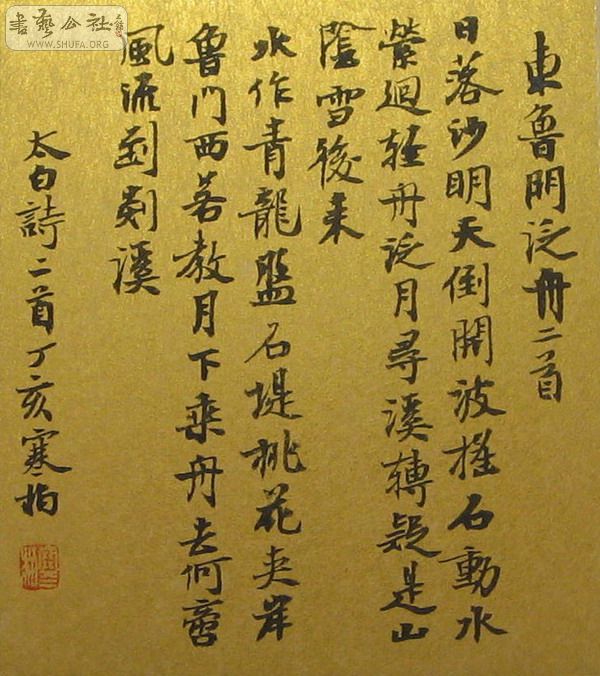 書藝公社
WWW.SHUFA.ORG
東魯門泛舟二首
日落沙明天倒開波搖石動水
縈迴輕舟泛月尋溪轉疑是山
陰雪後來
水作青龍盤石堤桃花夾岸
魯門西若教月下乘舟去何啻
風流到剡溪
太白詩二首丁亥寒